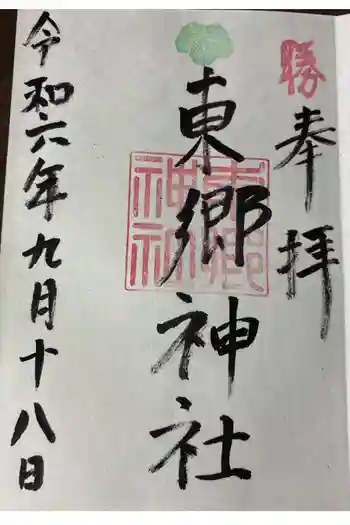 勝
奉拝
東郷神社
東郷神社
令和六年九月十八日